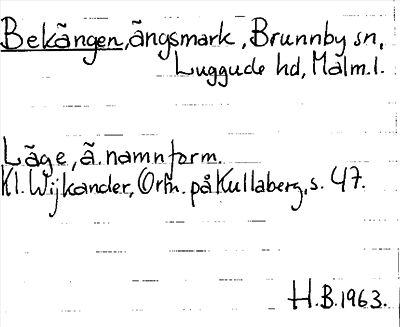 Bekängen, ängsmark, Brunnby sn,
Luggude hd, Malm. l.
Läge, ä. namnform.
Kl. Wijkander, Ortn. på Kullaberg, s. 47.
H.B. 1963.